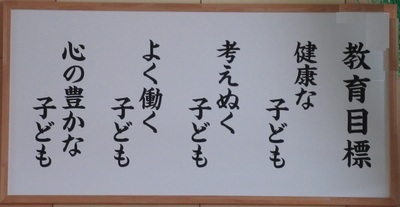 教育目標
健康な
子ども
考えぬく
子ども
よく働く
子ども
心の豊かな
子ども